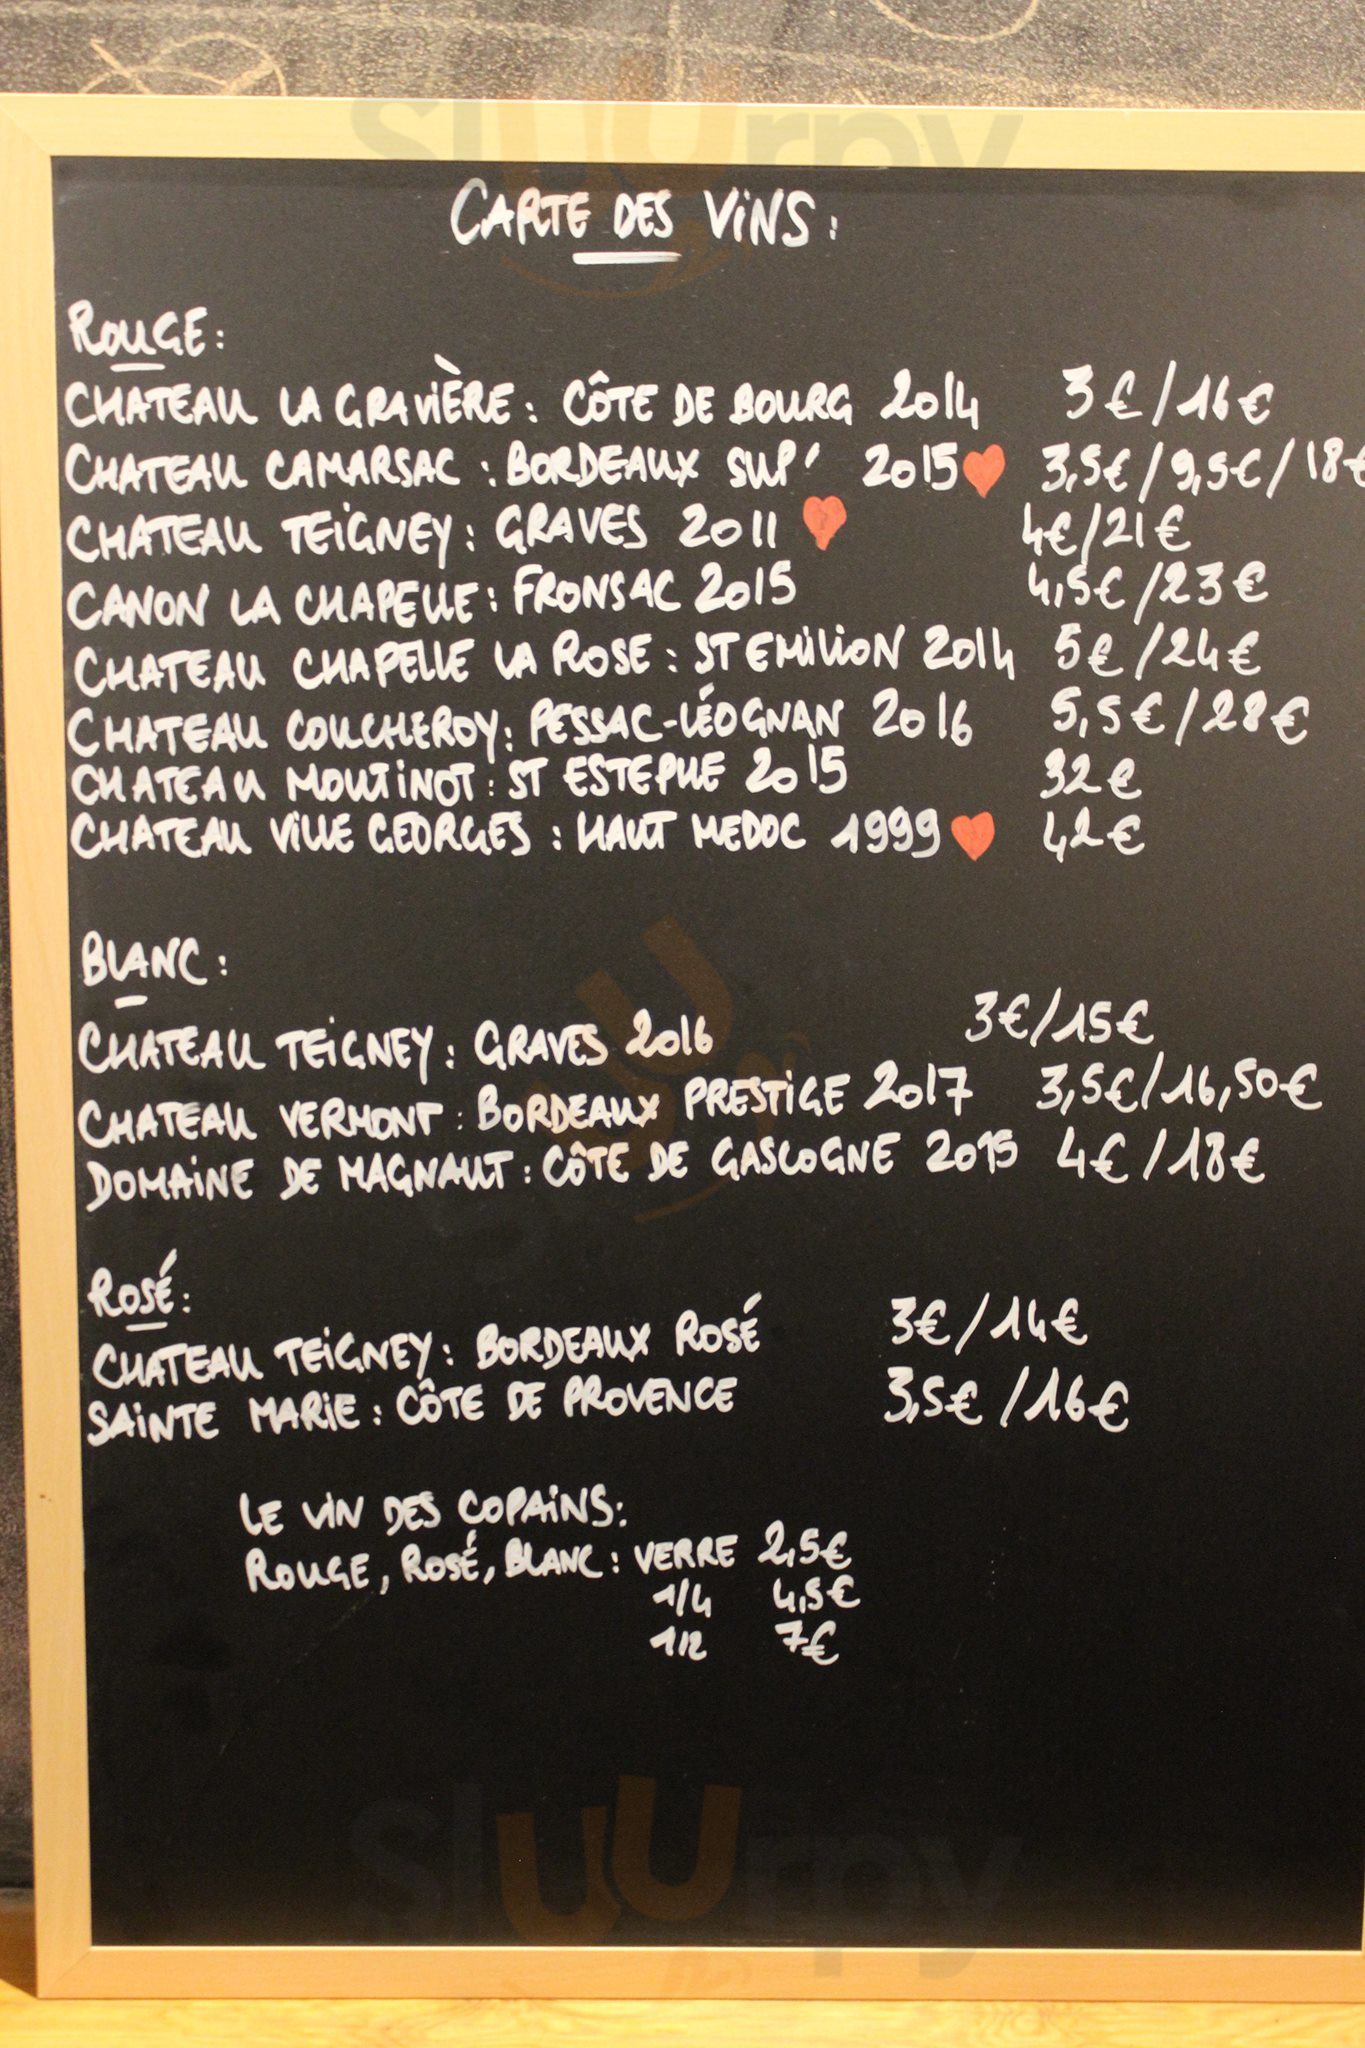 sluurpy
CARTE DES VINS :
ROUGE :
CHATEAU LA GRAVIÈRE : CÔTE DE BOURG 2014 3€/16€
CHATEAU CAMARSAC : BORDEAUX SUP' 2015 3,5€/9,5€/18€
CHATEAU TEIGNEY : GRAVES 2011 4€/21€
CANON LA CHAPELLE : FRONSAC 2015 4,5€/23€
CHATEAU CHAPELLE LA ROSE : ST EMILION 2014 5€/24€
CHATEAU COUCHEROY : PESSAC-LÉOGNAN 2016 5,5€/28€
CHATEAU MOUTINOT : ST ESTEPHE 2015 32€
CHATEAU VILLE GEORGES : HAUT MEDOC 1999 42€
BLANC :
CHATEAU TEIGNEY : GRAVES 2016 3€/15€
CHATEAU VERMONT : BORDEAUX PRESTIGE 2017 3,5€/16,50€
DOMAINE DE MAGNAUT : CÔTE DE GASCOGNE 2015 4€/18€
ROSÉ :
CHATEAU TEIGNEY : BORDEAUX ROSÉ 3€/14€
SAINTE MARIE : CÔTE DE PROVENCE 3,5€/16€
LE VIN DES COPAINS :
ROUGE, ROSÉ, BLANC : VERRE 2,5€
1/4 4,5€
1/2 7€
sluurpy